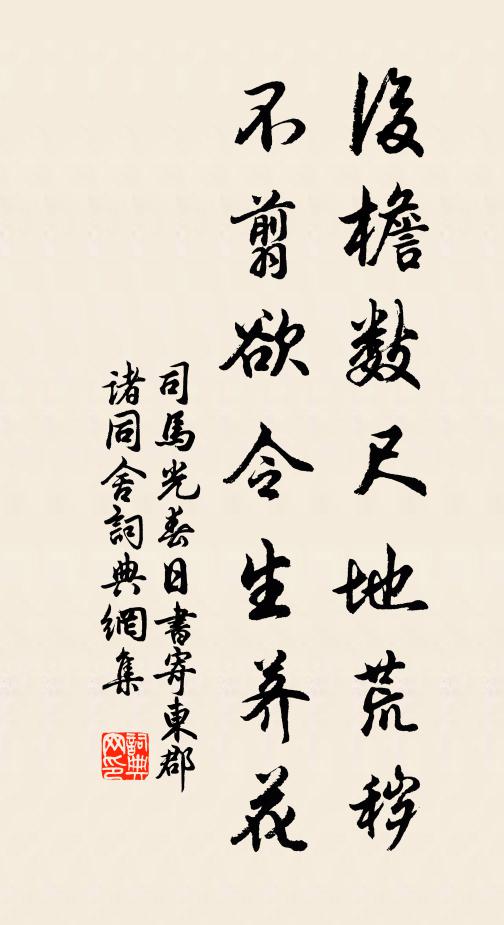 後檐數尺地荒穢
不翦欲令生養花
司馬光春日書寄東郡
诸同舍詞典網集
詞典网印